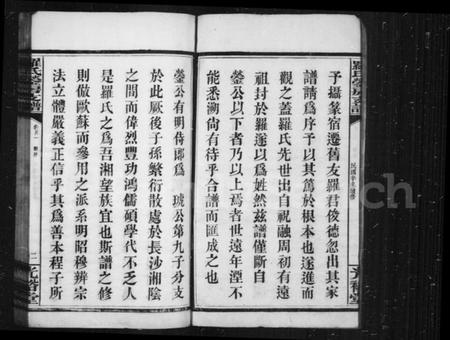 予攝篆宿遷舊友羅君俊德忽出其家
譜請爲序予以其篤於根本也遂進而
觀之蓋羅氏先世出自祝融周初有遠
祖封於羅遂以爲姓然茲譜僅斷自
瑩公以下者乃以上焉者世遠年湮不
能悉溯尙有待乎合譜而匯成之也
瑩公有明侍郎爲 琥公第九子分支
於此厥後子孫繁衍散處於長沙湘陰
之間而偉烈豐功鴻儒碩學代不乏人
是羅氏之爲吾湘望族宜也斯譜之修
則倣歐蘇而參用之派系明昭穆辨宗
法立體嚴義正信乎其爲善本程子所
元潽堂